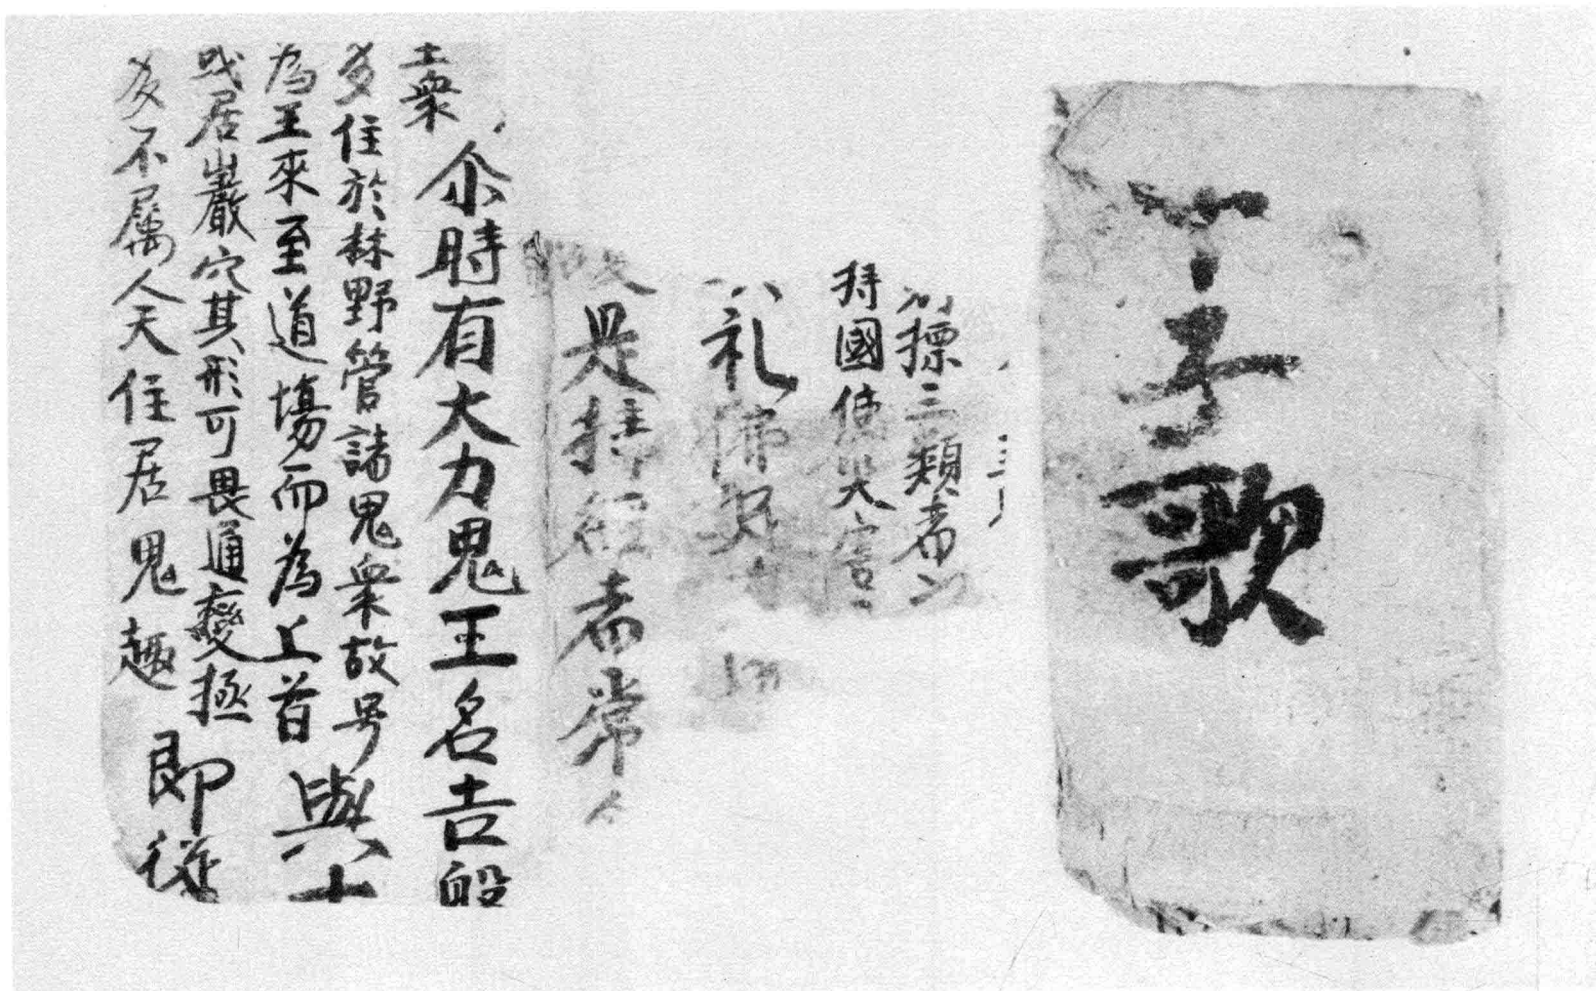 丁子歌
摽三類者二
持國使大害
礼佛
是持經者常
尒時有大力鬼王名吉般
衆
多住於林野管諸鬼衆故号
為王來至道場而為上首與十
或居巖穴其形可畏通變極
多不属人天住居鬼趣即從